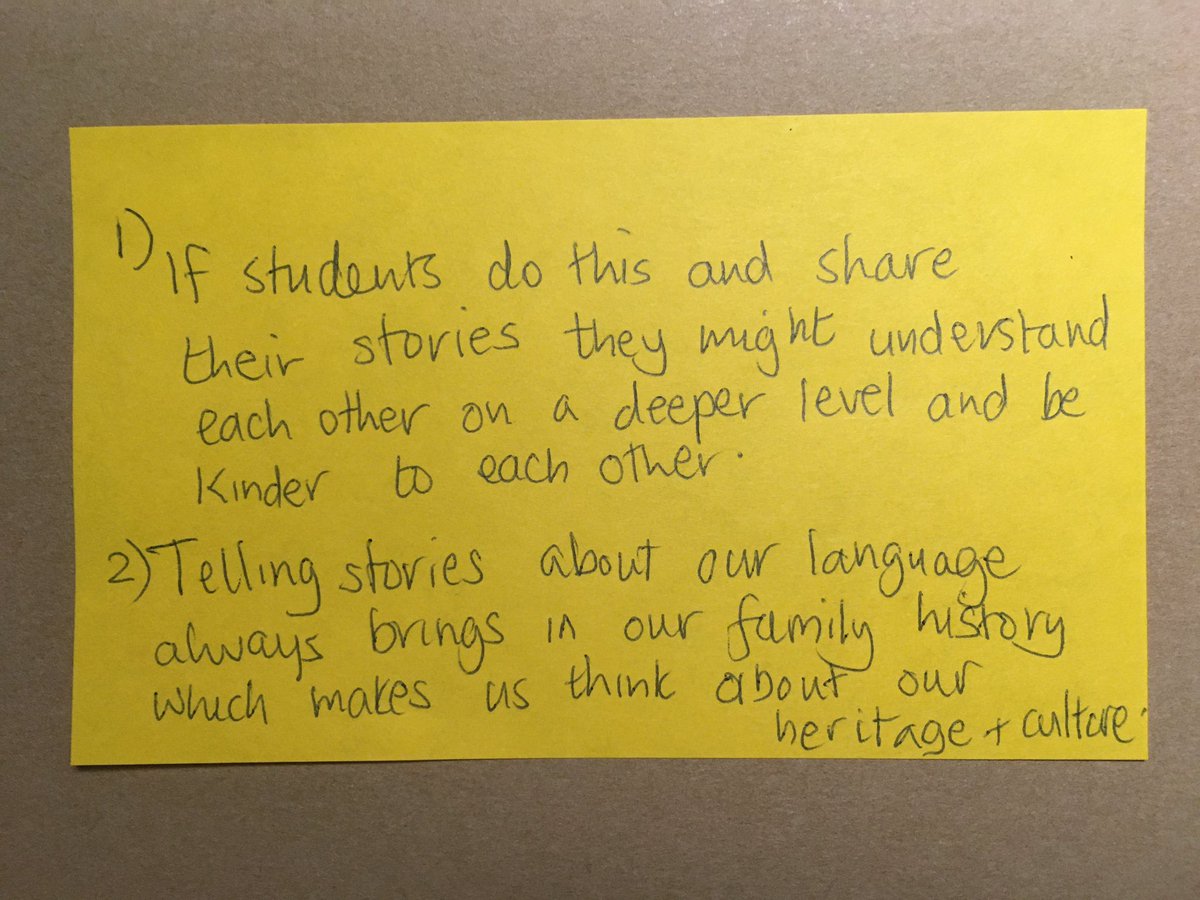 1) If students do this and share
their stories they might understand
each other on a deeper level and be
kinder to each other.
2) Telling stories about our language
always brings in our family history
which makes us think about our
heritage + culture.